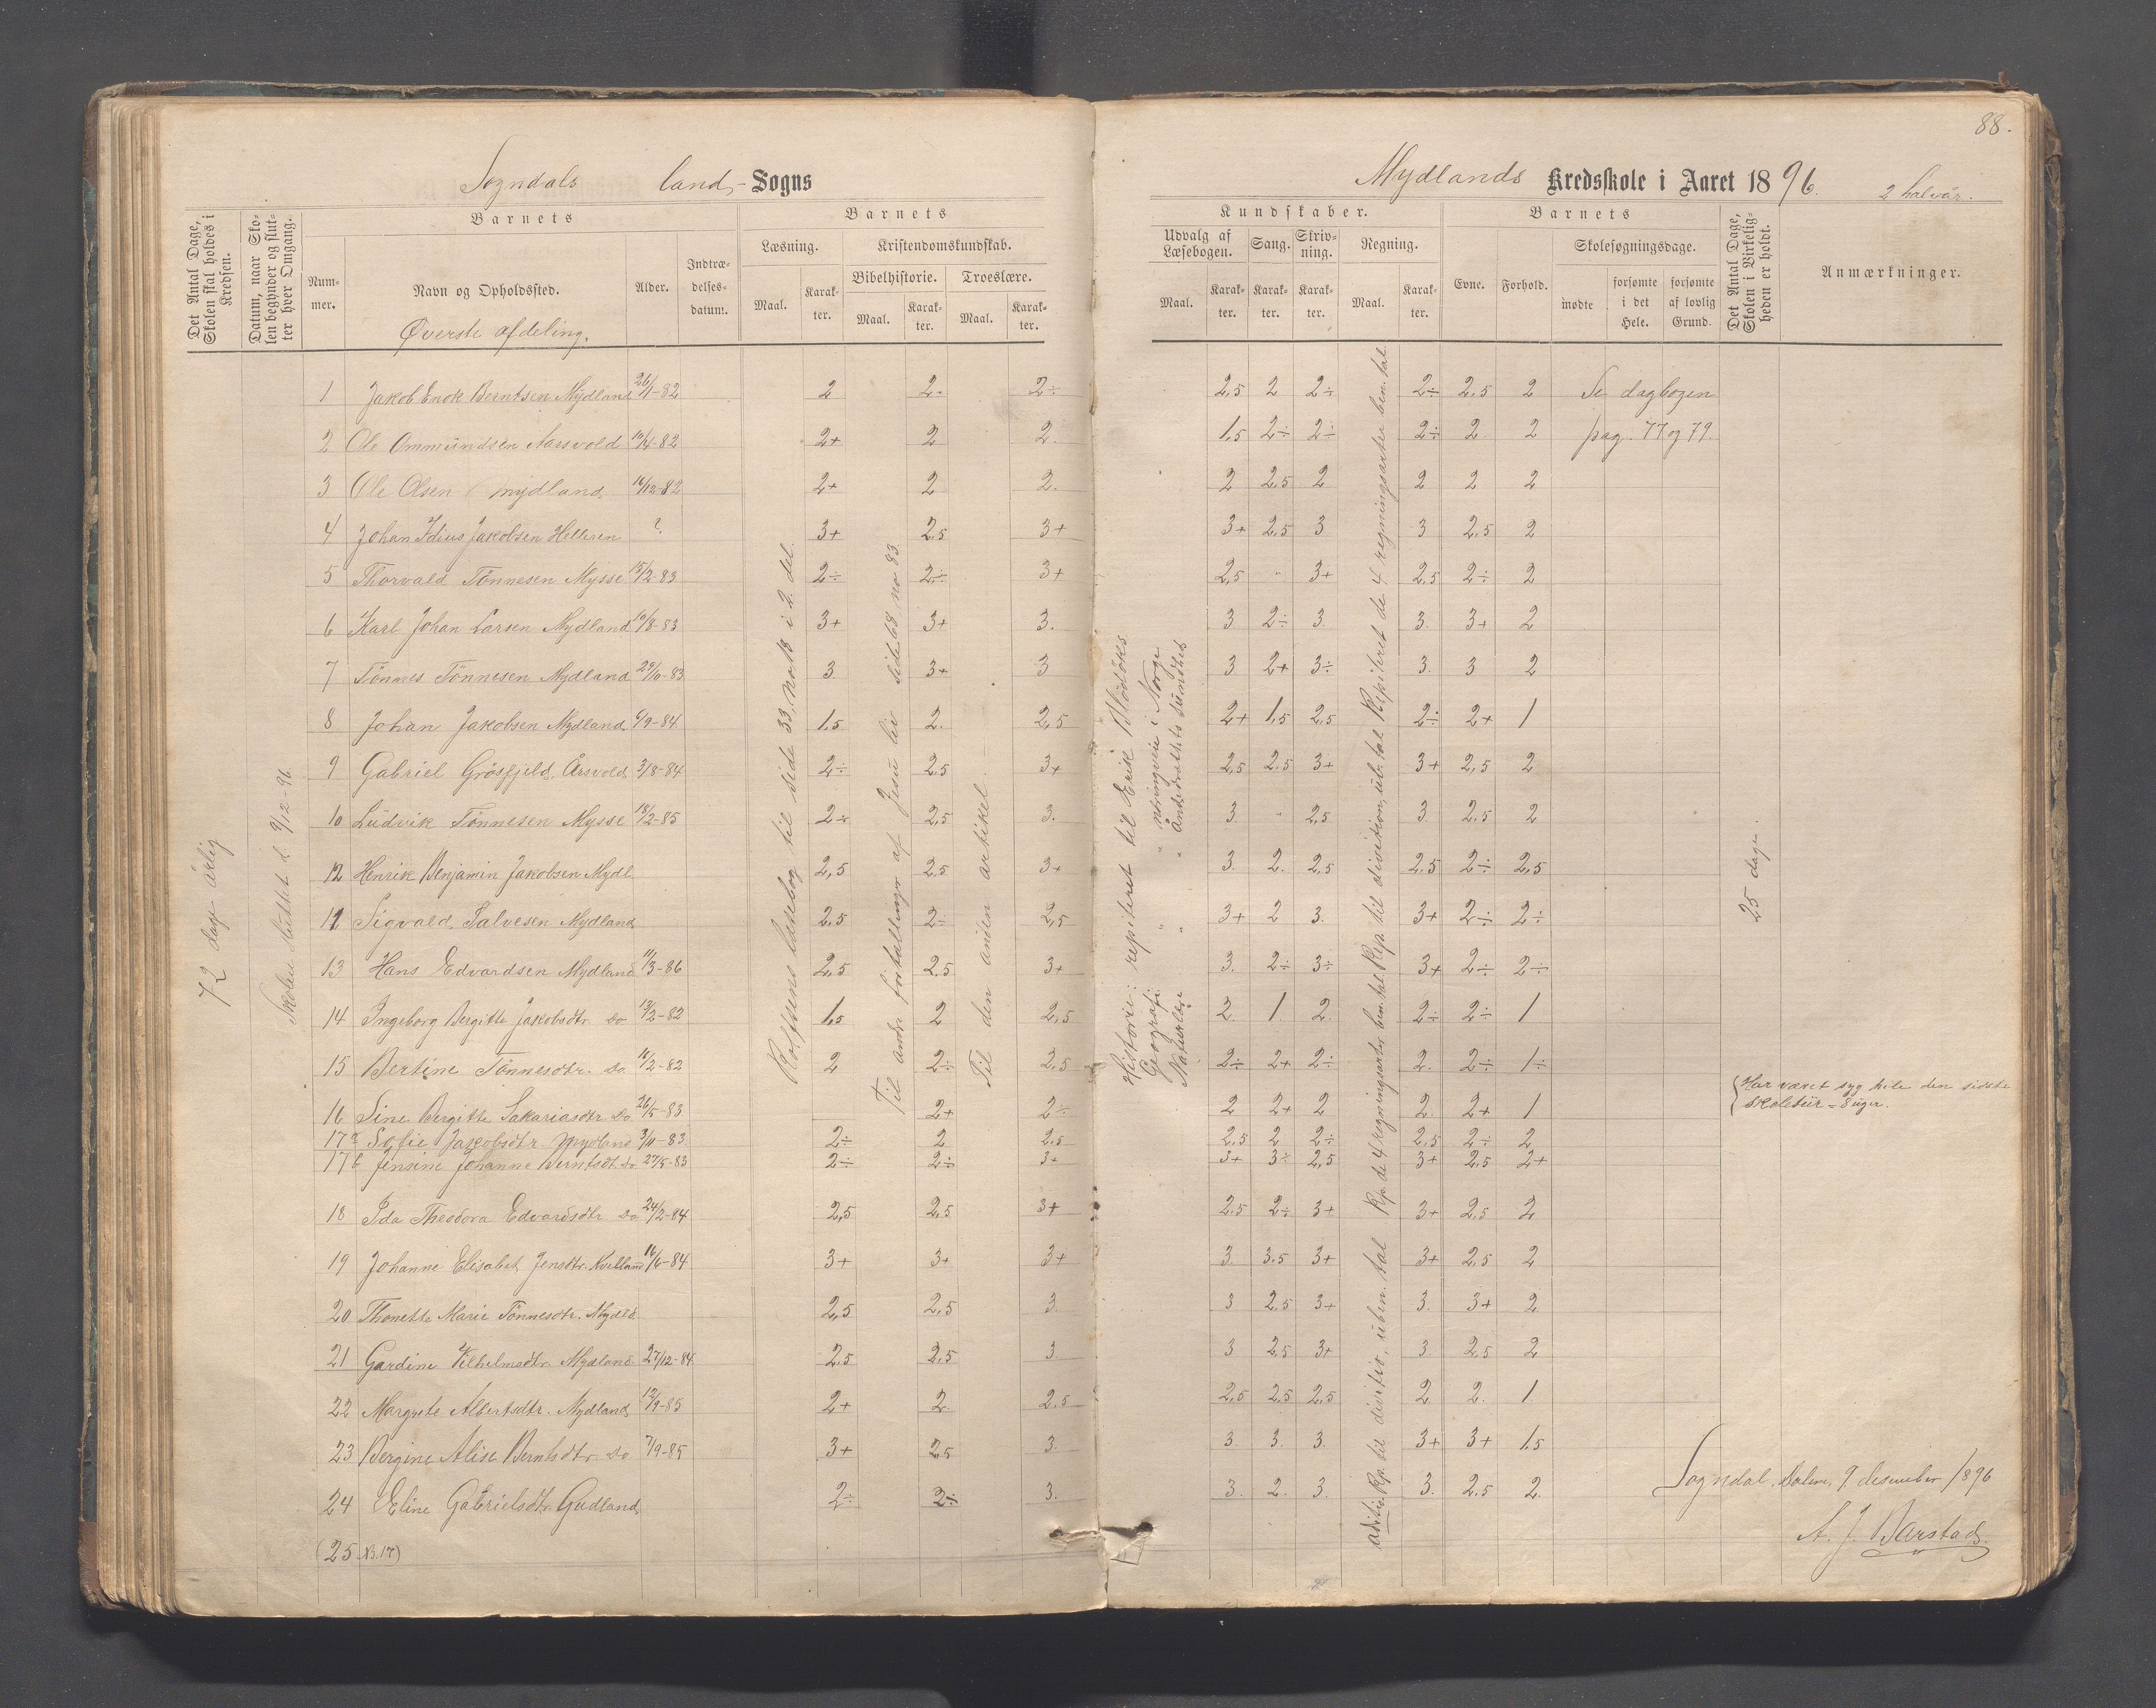 88.
Sogndals land- Sogns
Mydlands Kredsskole i Aaret 1896. 2 halvår.
Det Antal Dage, Skolen skal holdes i Kredsen.
Datum, naar Skolen begynder og slutter hver Omgang.
Barnets
Nummer.
Navn og Opholdssted.
Alder.
Indtrædelsesdatum.
Øverste afdeling.
Barnets
Læsning.
Kristendomskundskab.
Bibelhistorie.
Troeslære.
Maal. Karakter. Maal. Karakter. Maal. Karakter.
Kundskaber.
Udvalg af Læsebogen. Sang. Skrivning. Regning.
Maal. Karakter. Karakter. Karakter. Maal. Karakter.
Barnets
Evne. Forhold.
Skolesøgningsdage.
mødte forsømte i det Hele. forsømte af lovlig Grund.
Det Antal Dage, Skolen i Virkeligheden er holdt.
Anmærkninger.
72 dage årlig
Skolen sluttet d. 9/12-96.
Rolfsens læsebog til side 33, no 13 i 2. del.
Til andre fortællinger af Jesu liv side 68, no 83
Til den anden artikel
Historie: repiteret til Erik Blodøks
Geografi: " næringsveie i Norge
Naturlære " " Åndedrættets sundhed
Repiteret de 4 regningsarter ben. tal
Rep. til division, ub. tal
Rp. de 4 regningsarter ben. tal.
Rp. til divisio, uben. tal
adition
25 dage.
1 Jakob Enok Berntsen Mydland 26/1-82 2 2. 2÷ 2,5 2 2÷ 2÷ 2,5 2 Se dagbogen
2 Ole Ommundsen Aarsvold 10/4-82 2+ 2 2. 1,5 2÷ 2÷ 2÷ 2 2 pag. 77 og 79.
3 Ole Olsen Mydland 16/12-82 2+ 2 2. 2 2,5 2 2 2 2
4 Johan Idius Jakobsen Helleren ? 3+ 2,5 3+ 3+ 2,5 3 3 2,5 2
5 Thorvald Tønnesen Mysse 15/2-83 2÷ 2÷ 3+ 2,5 " 3+ 2,5 2÷ 2
6 Karl Johan Larsen Mydland 10/8-83 3+ 3+ 3. 3 2÷ 3. 3. 3+ 2
7 Tønnes Tønnesen Mydland 29/10-83 3 3+ 3 3 2+ 3÷ 3. 3 2
8 Johan Jakobsen Mydland 6/9-84 1,5 2. 2,5 2+ 1,5 2,5 2÷ 2+ 1
9 Gabriel Grøsfjeld, Årsvold 3/8-84 2÷ 2,5 3+ 2,5 2,5 3+ 3+ 2,5 2
10 Ludvik Tønnesen Mysse 18/2-85 2÷ 2,5 3. 3. " 2,5 3. 2,5 2
12 Henrik Benjamin Jakobsen Mydl. 2,5 2,5 3+ 3. 2. 2,5 2,5 2÷ 2,5
11 Sigvald Salvesen Mydland 2,5 2÷ 2,5 3+ 2 3. 3+ 2÷ 2÷
13 Hans Edvardsen Mydland 11/3-86 2,5 2.5 3+ 3. 2÷ 3÷ 3+ 2÷ 2÷
14 Ingeborg Bergitte Jakobsdtr. Do 13/2-82 1,5 2 2,5 2. 1 2. 2÷ 2÷ 1
15 Bertine Tønnesdtr. Do. 10/2-82 2 2÷ 2,5 2÷ 2+ 2÷ 2. 2÷ 1÷
16 Sine Bergitte Sakariasdtr. Do 26/5-83 2+ 2÷ 2 2+ 2 2. 2+ 1 Har været syg hele den sidste
skoletur = 8 uger.
17a Sofie Jakobsdtr. Mydland 3/11-83 2÷ 2 2.5 2,5 2 2÷ 2,5 2÷ 2
17b Jensine Johanne Berntsdt. Do 27/5-83 2÷ 2÷ 3+ 3+ 3÷ 2,5 3+ 2,5 2+
18 Ida Theodora Edvardsdtr Do 24/2-84 2,5 2,5 3+ 2.5 2÷ 3+ 3+ 2,5 2
19 Johanne Elisabet Jensdtr. Kvelland 16/6-84 3+ 3+ 3+ 3. 3.5 3+ 3+ 2,5 2
20 Thonette Marie Tønnesdtr. Mydld 2,5 2,5 3. 3 2,5 3+ 3. 3+ 2
21 Gardine Vilhelmsdtr. Mydland. 27/12-84 2,5 2,5 3 3 2,5 3+ 3. 2,5 2
22 Margrete Albertsdtr. Mydland 12/9-85 2+ 2. 2.5 2,5 2,5 2,5 2 2. 1.
23 Bergine Alise Berntsdtr. Do 7/9-85 3+ 2,5 3. 3. 3. 3. 3+ 3+ 1,5
24 Eline Gabrielsdtr. Gudland 2÷ 2÷ 3. 3. 2. 3. 3. 2,5 2.
(25 N. 17)
Sogndal, Dalen, 9 desember 1896
A. J. Barstad.